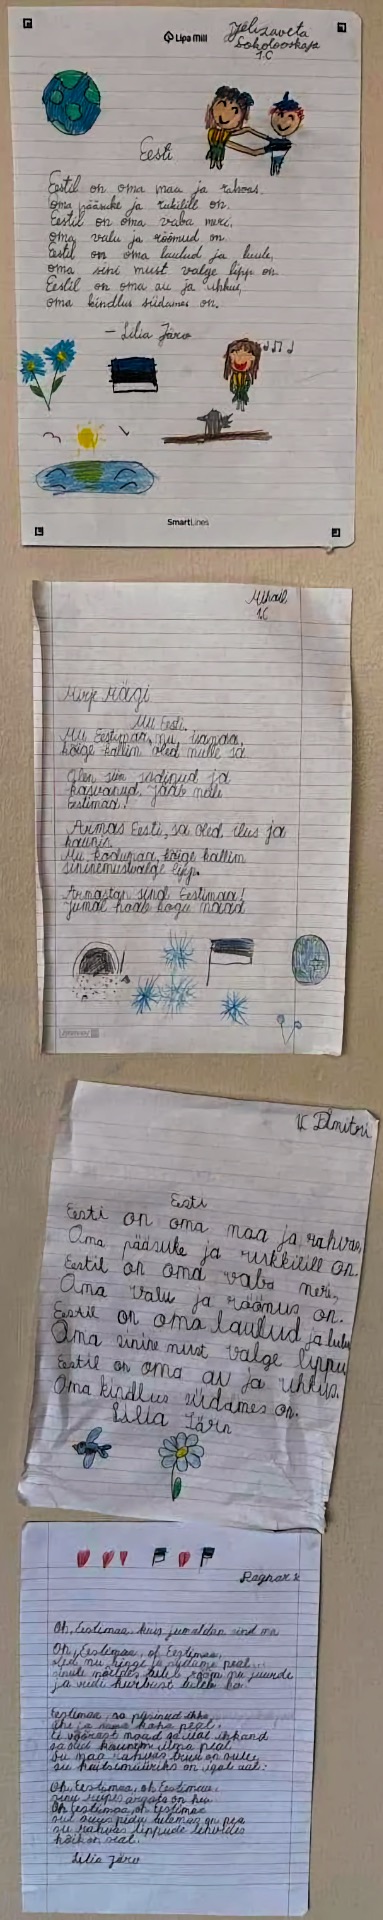 Lipa Mill
Jelizaveta
Sokolovskaja
1.C
Eesti
Eestil on oma maa ja rahvas,
oma pääsuke ja rukilill on.
Eestil on oma vaba meri,
oma valu ja rõõmud on.
Eestil on oma laulud ja keele,
oma sini must valge lipp on.
Eestil on oma au ja uhkus,
oma kindlus südames on.
– Lilia Järv
SmartLines
Mihail
1C
Mirje Mägi
Mu Eesti
Mu Eestimaa, mu isamaa,
kõige kallim oled mulle sa
Olen siin sündinud ja
kasvanud,
Eestimaa!
Armas Eesti, sa oled ilus ja
kaunis.
Mu kodumaa, kõige kallim
sininemustvalge lipp.
Armastan sind Eestimaa!
Jumal
1C Dmitri
Eesti
Eesti on oma maa ja rahvas,
Oma pääsuke ja rukkilill on.
Eestil on oma vaba meri,
Oma valu ja rõõmus on.
Eestil on oma laulud ja
Oma sinine must valge lippu
Eestil on oma au ja uhkus,
Oma kindlus südames on.
Lilia Järv
Ragnar
Oh, Eestimaa, kuis jumaldan sind ma
Oh, Eestimaa, oh Eestimaa,
oled mu hinge ja südame peal.
sinule mõeldes tuleb rõõm mu juurde
ja veidi kurbust tuleb ka.
Eestimaa, sa püsinud
ühe ja sama koha peal.
Ei võõrast maad sa
sa oled kaunim ilma peal
Su maa rahvas truu on sulle,
su
Oh, Eestimaa, oh Eestimaa,
sinu rüpes
Oh Eestimaa, oh Eestimaa
sul suur pidu tulemas on pea
su rahvas lippude lehvides
kõik on seal.
Lilia Järv